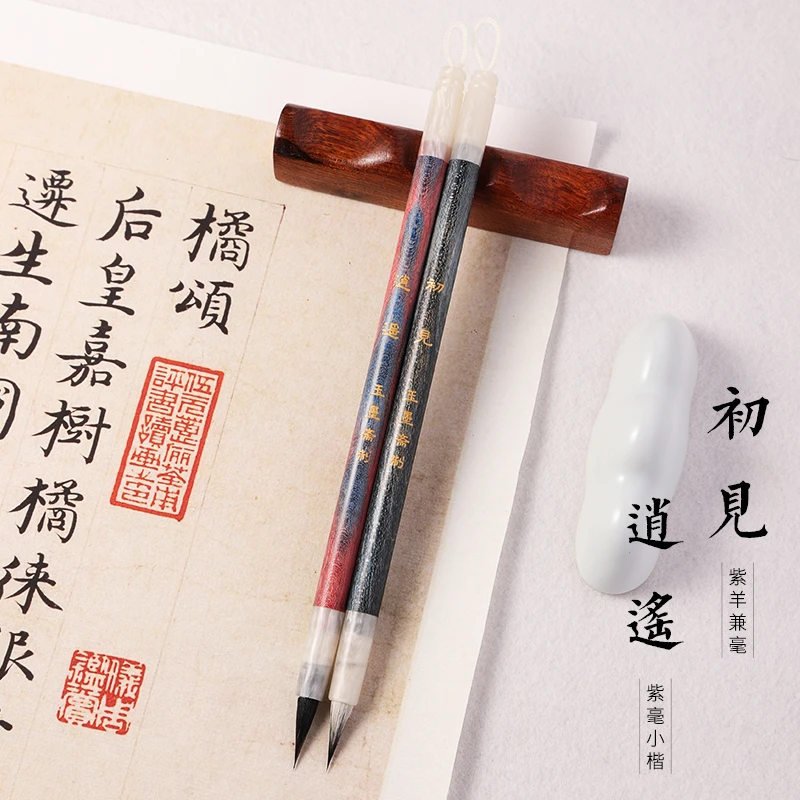 橘頌
后皇嘉樹橘徠
遷生南
儀周鑑賞
初見 玉墨斋制
逍遙 玉墨斋制
初見
紫羊兼毫
逍遙
紫毫小楷